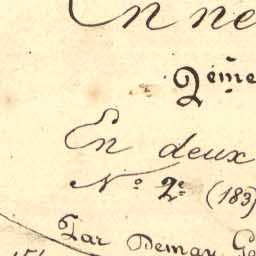 En ne
2ème
En deux
Nº 2e (183
Par Demay, Ga